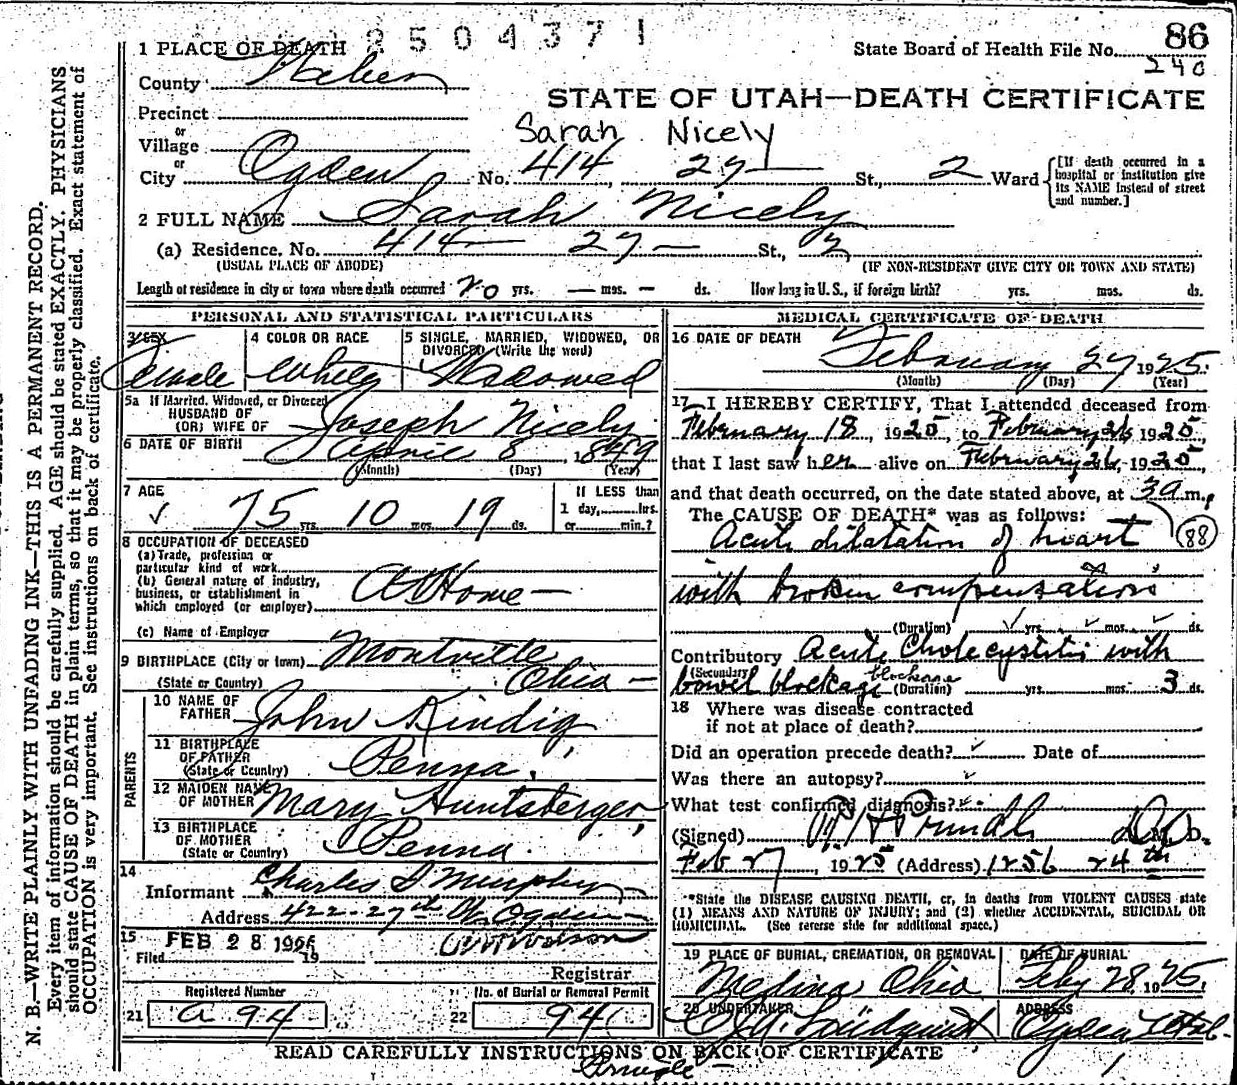 2504371
86
State Board of Health File No.
240
1 PLACE OF DEATH
County Weber
STATE OF UTAH—DEATH CERTIFICATE
Precinct
or
Village
Sarah Nicely
or
City Ogden No. 414 27— St., 2 Ward
[If death occurred in a
hospital or institution give
its NAME instead of street
and number.]
2 FULL NAME Sarah Nicely
(a) Residence, No. 414— 27— St., 2
(USUAL PLACE OF ABODE) (IF NON-RESIDENT GIVE CITY OR TOWN AND STATE)
Length of residence in city or town where death occurred 20 yrs. — mos. — ds. How long in U. S., if foreign birth? yrs. mos. ds.
PERSONAL AND STATISTICAL PARTICULARS
3 SEX
Female
4 COLOR OR RACE
White
5 SINGLE, MARRIED, WIDOWED, OR
DIVORCED (Write the word)
Widowed
5a If Married, Widowed, or Divorced
HUSBAND OF
(OR) WIFE OF Joseph Nicely
6 DATE OF BIRTH April 8 1849
(Month) (Day) (Year)
7 AGE
✓ 75 yrs. 10 mos. 19 ds.
If LESS than
1 day, hrs.
or min.?
8 OCCUPATION OF DECEASED
(a) Trade, profession or
particular kind of work
(b) General nature of industry,
business, or establishment in
which employed (or employer) At Home—
(c) Name of Employer
9 BIRTHPLACE (City or town) Montville
(State or Country) Ohio—
PARENTS
10 NAME OF
FATHER John Kindig
11 BIRTHPLACE
OF FATHER
(State or Country) Penna.
12 MAIDEN NAME
OF MOTHER Mary Huntsberger
13 BIRTHPLACE
OF MOTHER
(State or Country) Penna.
14
Informant Charles S Murphy
Address 422-27th St. Ogden
15
Filed FEB 28 1925 19
Registrar
Registered Number
21 a 94
No. of Burial or Removal Permit
22 94
MEDICAL CERTIFICATE OF DEATH
16 DATE OF DEATH
February 27 1925.
(Month) (Day) (Year)
17 I HEREBY CERTIFY, That I attended deceased from
February 18, 1925, to February 26 1925,
that I last saw her alive on February 26, 1925,
and that death occurred, on the date stated above, at 3 a m.
The CAUSE OF DEATH* was as follows:
Acute dilatation of heart (88)
with broken compensation
(Duration) yrs. mos. ds.
Contributory Acute Cholecystitis with
(Secondary)
bowel blockage blockage (Duration) yrs. mos. 3 ds.
18 Where was disease contracted
if not at place of death?
Did an operation precede death? ✓ Date of
Was there an autopsy? ✓
What test confirmed diagnosis? ✓
(Signed)
Feb 27, 1925 (Address) 1256 24th
*State the DISEASE CAUSING DEATH, or, in deaths from VIOLENT CAUSES state
(1) MEANS AND NATURE OF INJURY; and (2) whether ACCIDENTAL, SUICIDAL OR
HOMICIDAL. (See reverse side for additional space.)
19 PLACE OF BURIAL, CREMATION, OR REMOVAL
Medina Ohio
DATE OF BURIAL
Feby 28, 1925.
20 UNDERTAKER
Lindquist
ADDRESS
Ogden Utah.
READ CAREFULLY INSTRUCTIONS ON BACK OF CERTIFICATE
N. B.—WRITE PLAINLY WITH UNFADING INK—THIS IS A PERMANENT RECORD.
Every item of information should be carefully supplied. AGE should be stated EXACTLY. PHYSICIANS
should state CAUSE OF DEATH in plain terms, so that it may be properly classified. Exact statement of
OCCUPATION is very important. See instructions on back of certificate.